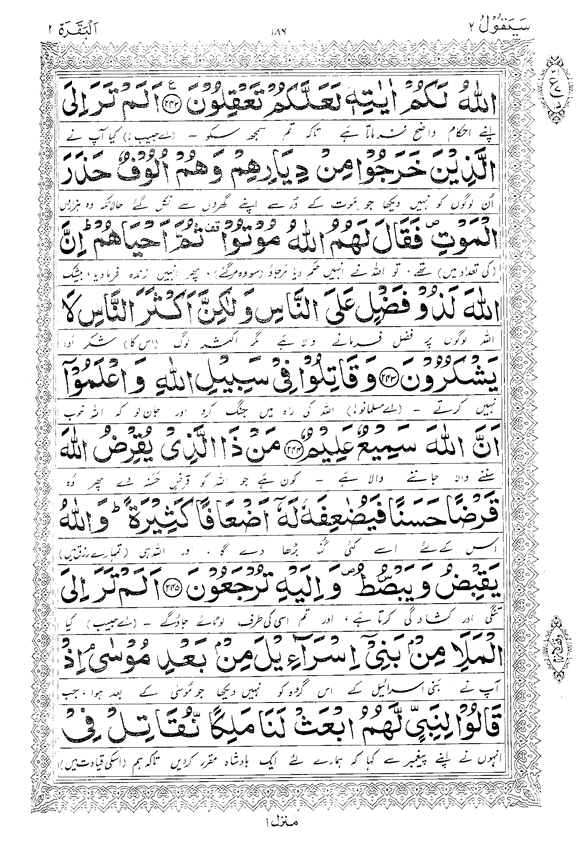 سَيَقُولُ ٢ ١٨٩ اَلْبَقَرَة ٢
اللّٰهُ لَكُمْ اٰيٰتِهٖ لَعَلَّكُمْ تَعْقِلُوْنَ ﴿۲۴۲﴾ اَلَمْ تَرَ اِلَى
اپنے احکام واضح فرماتا ہے تاکہ تم سمجھ سکو - (اے حبیب!) کیا آپ نے
الَّذِيْنَ خَرَجُوْا مِنْ دِيَارِهِمْ وَهُمْ اُلُوْفٌ حَذَرَ
اُن لوگوں کو نہیں دیکھا جو موت کے ڈر سے اپنے گھروں سے نکل گئے حالانکہ وہ ہزاروں
الْمَوْتِ ۪ فَقَالَ لَهُمُ اللّٰهُ مُوْتُوْا ۫ ثُمَّ اَحْيَاهُمْ ؕ اِنَّ
(کی تعداد میں) تھے، تو اللہ نے انہیں حکم دیا مر جاؤ (سو وہ مر گئے)، پھر انہیں زندہ فرما دیا، بیشک
اللّٰهَ لَذُوْ فَضْلٍ عَلَى النَّاسِ وَلٰكِنَّ اَكْثَرَ النَّاسِ لَا
اللہ لوگوں پر فضل فرمانے والا ہے مگر اکثر لوگ (اس کا) شکر ادا
يَشْكُرُوْنَ ﴿۲۴۳﴾ وَقَاتِلُوْا فِيْ سَبِيْلِ اللّٰهِ وَاعْلَمُوْۤا
نہیں کرتے - (اے مسلمانو!) اللہ کی راہ میں جنگ کرو اور جان لو کہ اللہ خوب
اَنَّ اللّٰهَ سَمِيْعٌ عَلِيْمٌ ﴿۲۴۴﴾ مَنْ ذَا الَّذِيْ يُقْرِضُ اللّٰهَ
سننے والا جاننے والا ہے - کون ہے جو اللہ کو قرضِ حسنہ دے پھر وہ
قَرْضًا حَسَنًا فَيُضٰعِفَهٗ لَهٗۤ اَضْعَافًا كَثِيْرَةً ؕ وَاللّٰهُ
اس کے لئے اسے کئی گنا بڑھا دے گا، اور اللہ ہی (تمہارے رزق میں)
يَقْبِضُ وَيَبْصُۜطُ ۪ وَاِلَيْهِ تُرْجَعُوْنَ ﴿۲۴۵﴾ اَلَمْ تَرَ اِلَى
تنگی اور کشادگی کرتا ہے، اور تم اسی کی طرف لوٹائے جاؤ گے - (اے حبیب!) کیا
الْمَلَاِ مِنْۢ بَنِيْۤ اِسْرَآءِيْلَ مِنْۢ بَعْدِ مُوْسٰى ۘ اِذْ
آپ نے بنی اسرائیل کے اس گروہ کو نہیں دیکھا جو موسیٰ کے بعد ہوا، جب
قَالُوْا لِنَبِيٍّ لَّهُمُ ابْعَثْ لَنَا مَلِكًا نُّقَاتِلْ فِيْ
انہوں نے اپنے پیغمبر سے کہا کہ ہمارے لئے ایک بادشاہ مقرر کر دیں تاکہ ہم (اس کی قیادت میں)
منزل ١